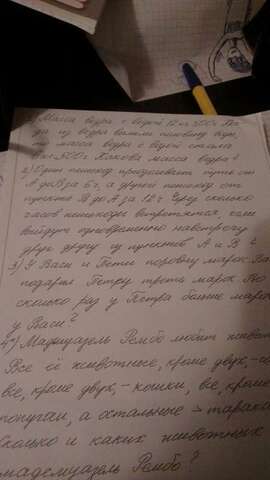 1) Масса ведра с водой 12 кг 500 г. Ко-
гда из ведра вылили половину воды,
то масса ведра с водой стала
500 г. Какова масса ведра?
2) Один пешеход преодолевает путь от
А до В за 6 ч, а другой пешеход от
пункта В до А за 12 ч. Через сколько
часов пешеходы встретятся, если
выйдут одновременно навстречу
друг другу из пунктов А и В?
3) У Васи и Пети поровну марок. Вася
подарил Петру треть марок. Во
сколько раз у Петра больше марок
у Васи?
4) Мадмуазель Рембо любит живот
Все её животные, кроме двух, - со
все, кроме двух, - кошки, все, кроме
попугаи, а остальные - таракан
Сколько и каких животных
мадемуазель Рембо?